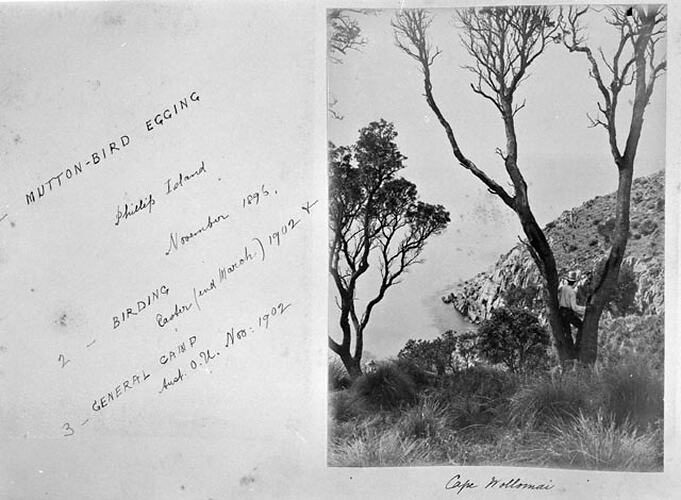 - MUTTON-BIRD EGGING
Phillip Island
November 1896.
2 - BIRDING
Easter (end March) 1902 &
3 - GENERAL CAMP
Aust. O.U. Nov: 1902
Cape Wollomai